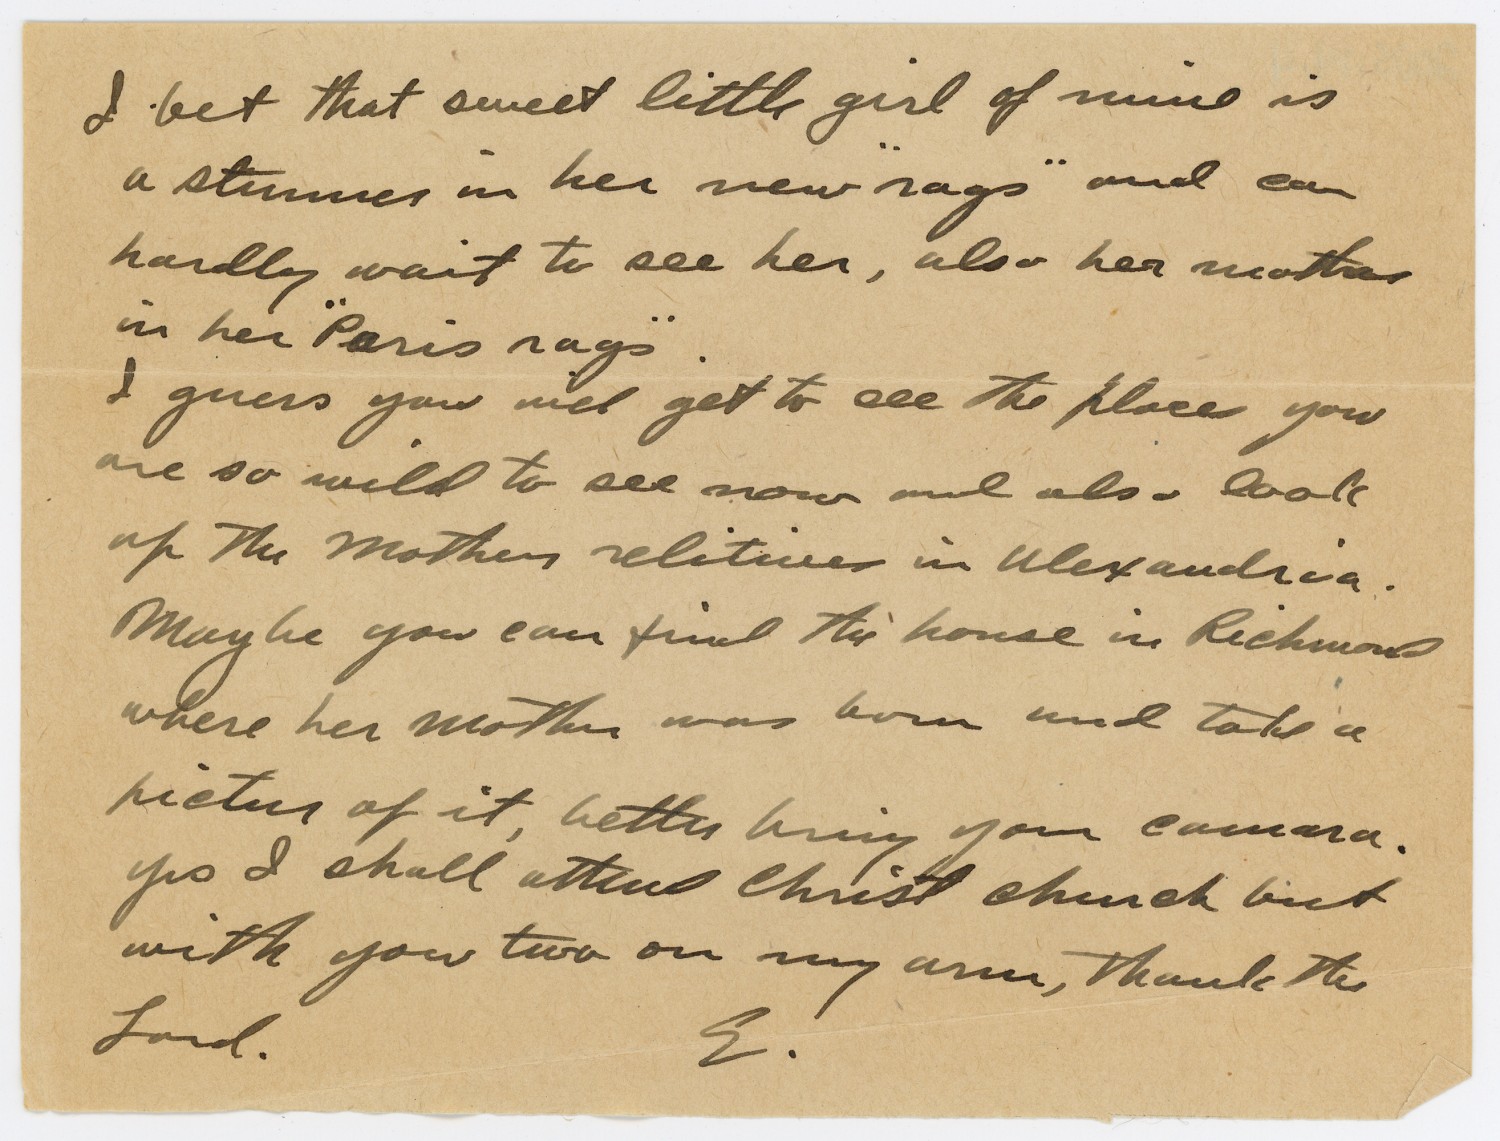 I bet that sweet little girl of mine is
a stunner in her new "rags" and can
hardly wait to see her, also her mother
in her "Paris rags".
I guess you will get to see the places you
are so wild to see now and also look
up the Mothers relitives in Alexandria.
Maybe you can find the house in Richmond
where her Mother was born and take a
pictur of it, better bring your camara.
yes I shall attend Christ church but
with you two on my arm, thank the
Lord. E.